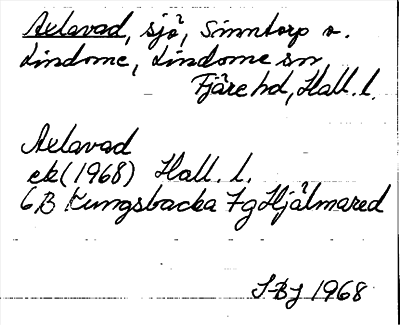 Axlavad, sjö, Sinntorp o.
Lindome, Lindome sn
Fjäre hd, Hall. l.
Axlavad
ek (1968) Hall. l.
6B Kungsbacka 7g Hjälmared
SBJ 1968